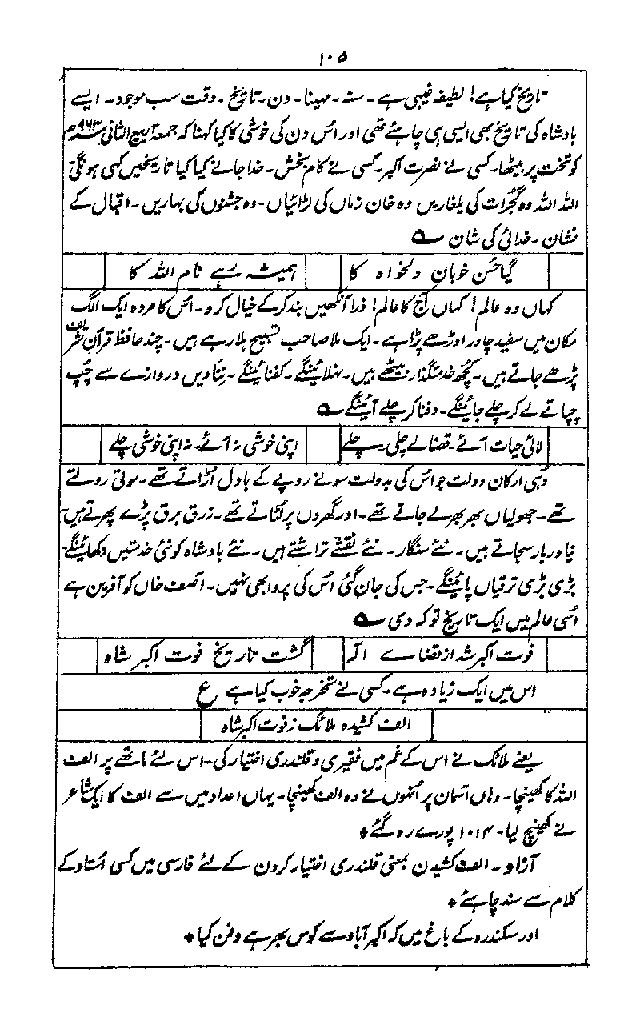 ۱۰۵
تاریخ کیا ہے! لطیفہ غیبی ہے ۔ سنہ ۔ مہینا ۔ دن ۔ تاریخ ۔ وقت سب موجود ۔ ایسے
بادشاہ کی تاریخ بھی ایسی ہی چاہئے تھی اور اس دن کی خوشی کا کیا کہنا کہ جمعہ ۲ ربیع الثانی ۹۶۳ھ
کو تخت پر بیٹھا ۔ کسی نے نصرت اکبر ۔ کسی نے کام بخش ۔ خدا جانے کیا کیا تاریخیں کہی ہونگی
اللہ اللہ وہ گجرات کی یلغاریں وہ خان زماں کی لڑائیاں ۔ وہ جشنوں کی بہاریں ۔ اقبال کے
نشان ۔ خدائی کی شان ؎
گیا حسن خوبان دلخواہ کا ہمیشہ رہے نام اللہ کا
کہاں وہ عالم! کہاں آج کا عالم! ذرا آنکھیں بند کرکے خیال کرو ۔ اس کا مردہ ایک الگ
مکان میں سفید چادر اوڑھے پڑا ہے ۔ ایک ملا صاحب تسبیح ہلا رہے ہیں ۔ چند حافظ قرآن شریف
پڑھے جاتے ہیں ۔ کچھ خدمتگار بیٹھے ہیں ۔ نہلائینگے ۔ کفنائینگے ۔ دروازے سے چپ
چپاتے لے کر چلے جائینگے ۔ دفنا کر چلے آئینگے ؎
لائی حیات آئے قضا لے چلی چلے اپنی خوشی نہ آئے نہ اپنی خوشی چلے
وہی ارکان دولت جو اس کی بدولت سونے روپے کے بادل اُڑاتے تھے ۔ موتی رولتے
تھے ۔ جھولیاں بھر بھر لے جاتے تھے ۔ اور گھروں پر لٹاتے تھے ۔ زرق برق پڑے پھرتے ہیں
نیا دربار سجاتے ہیں ۔ نئے سنگار ۔ نئے نقشے تراشتے ہیں ۔ نئے بادشاہ کو نئی خدمتیں دکھائینگے
بڑی بڑی ترقیاں پائینگے ۔ جس کی جان گئی اس کی پروا بھی نہیں ۔ آصف خاں کو آفرین ہے
اسی عالم میں ایک تاریخ تو کہہ دی ؎
فوت اکبر شد از قضائے الہ گشت تاریخ فوت اکبر شاہ
اس میں ایک زیادہ ہے ۔ کسی نے تخرجہ خوب کیا ہے ع
الف کشیدہ ملائک زفوت اکبر شاہ
یعنے ملائک نے اس کے غم میں فقیری و قلندری اختیار کی ۔ اس لئے ماتھے پر الف
اللہ کا کھینچا ۔ وہاں آسمان پر انہوں نے وہ الف کھینچا ۔ یہاں اعداد میں سے الف کا ایک شاعر
نے کھینچ لیا ۔ ۱۰۱۴ پورے رہ گئے ٭
آزاد ۔ الف کشیدن بمعنی قلندری اختیار کردن کے لئے فارسی میں کسی اُستاد کے
کلام سے سند چاہئے ٭
اور سکندرہ کے باغ میں کہ اکبر آباد سے کوس بھر ہے دفن کیا ٭